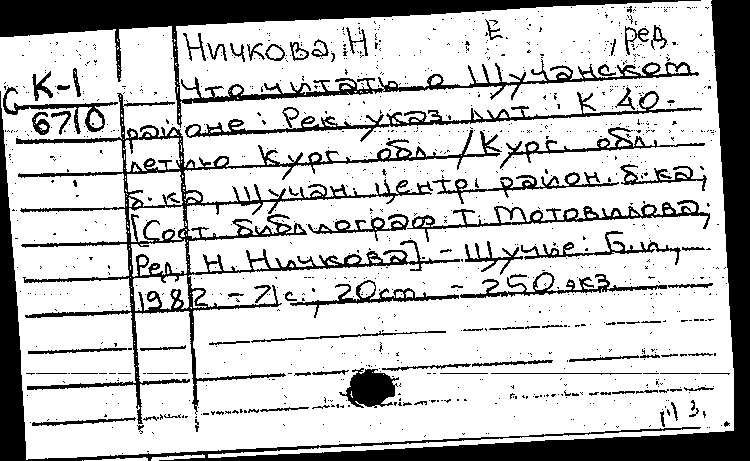 Ничкова, Н. Е , ред.
С К-1
6710
Что читать о Щучанском
районе : Рек. указ. лит. : К 40-
летию Кург. обл. / Кург. обл.
б-ка, Щучан. центр. район. б-ка;
[Сост. библиограф Т. Мотовилова;
Ред. Н. Ничкова]. - Щучье: Б.и.,
1982. - 21 с.; 20 cm. - 250 экз.